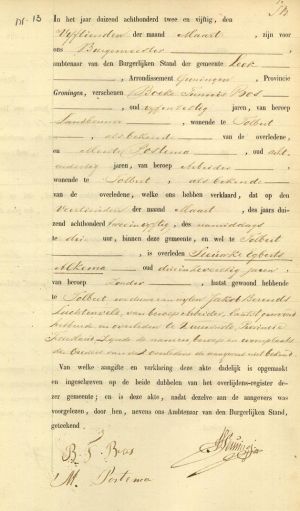 N. 13
In het jaar duizend achthonderd twee en vijftig, den
Vijftienden der maand Maart, zijn voor
ons Burgemeester
ambtenaar van den Burgerlijken Stand der gemeente Leek
, Arrondissement Groningen, Provincie
Groningen, verschenen Boele Bos
oud jaren, van beroep
, wonende te Tolbert
, als bekende van de overledene,
en Postema, oud acht
jaren, van beroep Arbeider
wonende te Tolbert, als bekende
van de overledene, welke ons hebben verklaard, dat op den
Veertienden der maand Maart, des jaars dui-
zend achthonderd twee en vijftig, des namiddags
te drie uur, binnen deze gemeente, en wel te Tolbert
, is overleden Egberts
Alkema oud drie en zeventig jaren,
van beroep Zonder, laatst gewoond hebbende
te Tolbert weduwe van wijlen Jakob Berends
van beroep Arbeider, laatst gewoond
hebbende en overleden te Provincie
Friesland, zijnde de namen, beroep en woonplaats
der van de overledene de aangevers niet bekend
Van welke aangifte en verklaring deze akte dadelijk is opgemaakt
en ingeschreven op de beide dubbelen van het overlijdens-register de-
zer gemeente; en is deze akte, nadat dezelve aan de aangevers was
voorgelezen, door hen, nevens ons Ambtenaar van den Burgerlijken Stand,
geteekend.
B. J. Bos
M. Postema